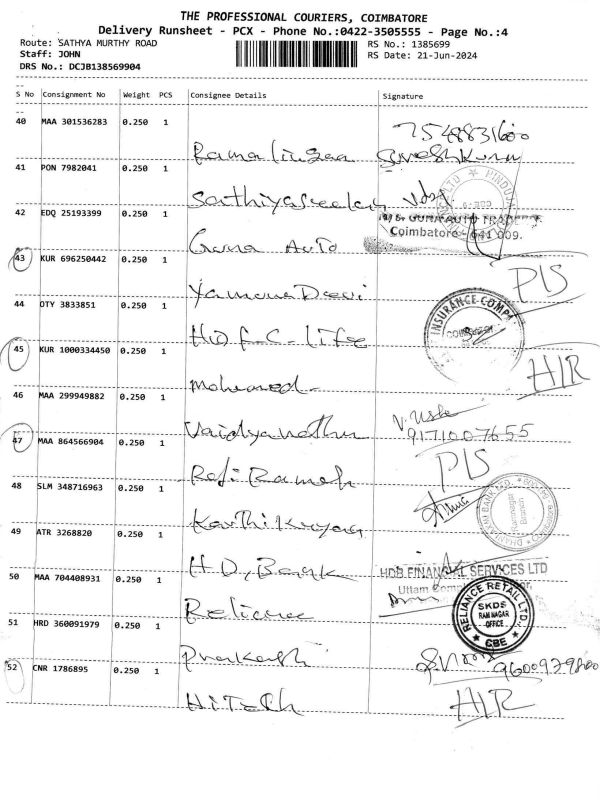 THE PROFESSIONAL COURIERS, COIMBATORE
Delivery Runsheet - PCX - Phone No.:0422-3505555 - Page No.:4
Route: SATHYA MURTHY ROAD RS No.: 1385699
Staff: JOHN RS Date: 21-Jun-2024
DRS No.: DCJB138569904
S No Consignment No Weight PCS Consignee Details Signature
40 MAA 301536283 0.250 1
7548831600
Ramalingaa
41 PON 7982041 0.250 1
42 EDQ 25193399 0.250 1
Coimbatore - 641 009.
Guna Auto
43 KUR 696250442 0.250 1
PIS
Yamuna Devi
44 OTY 3833851 0.250 1
INSURANCE COMP
H D F C Life
45 KUR 1000334450 0.250 1
HIR
Mohamed
46 MAA 299949882 0.250 1
V. Usha
9171007655
Vaidyanathan
47 MAA 864566904 0.250 1
PIS
Raji Ramesh
48 SLM 348716963 0.250 1
DHANLAXMI BANK LTD.
Ramnagar
Branch
Karthikeyan
49 ATR 3268820 0.250 1
HDB FINANCIAL SERVICES LTD
H D, Bank
50 MAA 704408931 0.250 1
RELIANCE RETAIL LTD.
SKDS
RAM NAGAR
OFFICE
CBE
Reliance
51 HRD 360091979 0.250 1
Prakash
9600979800
52 CNR 1786895 0.250 1
HIR
HiTech